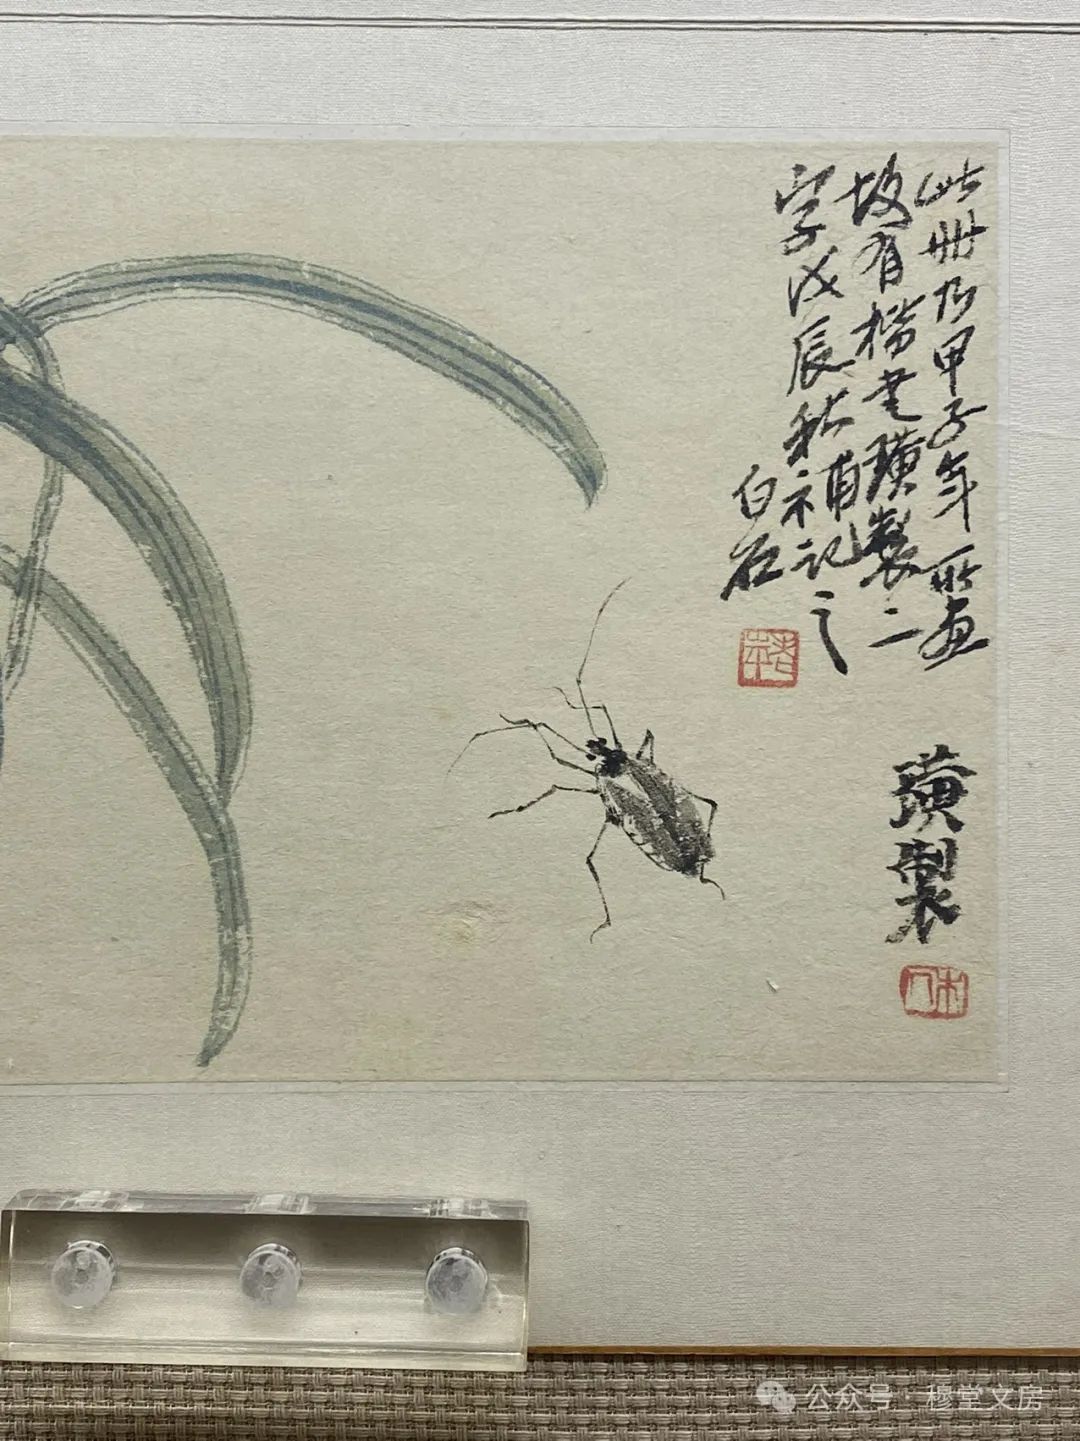 此冊乃甲子年所畫
故有楷書璜製二
字戊辰秋補記之
白石
璜製
木人
公众号 · 穆堂文房